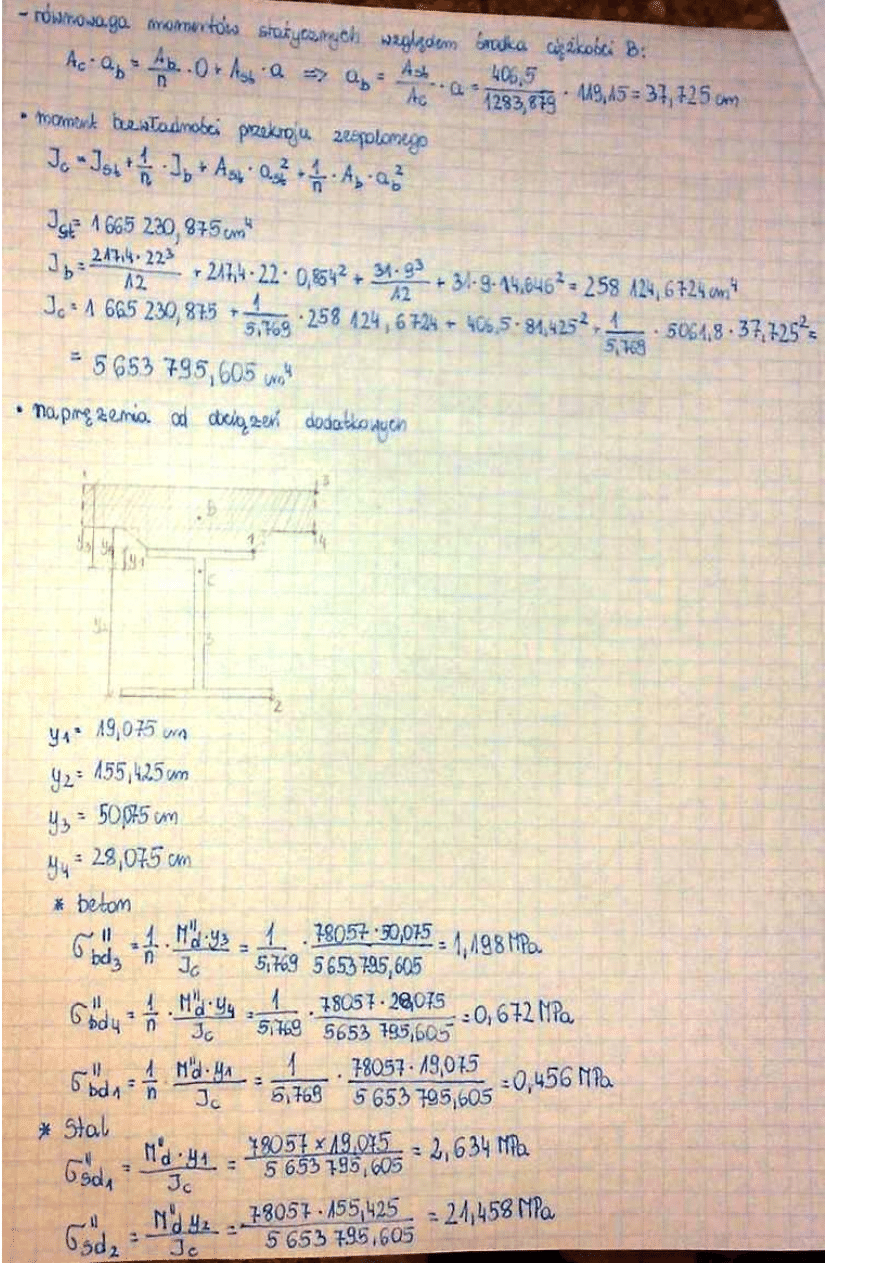 - równowaga momentów statycznych względem środka ciężkości B:
Ac · ab = Ab/n · 0 + Ast · a => ab = Ast/Ac · a = 406,5/1283,879 · 119,15 = 37,725 cm
• moment bezwładności przekroju zespolonego
Jc = Jst + 1/n · Jb + Ast · ast² + 1/n · Ab · ab²
Jst = 1 665 230,875 cm⁴
Jb = 217,4·22³/12 + 217,4·22·0,854² + 31·9³/12 + 31·9·14,646² = 258 124,6724 cm⁴
Jc = 1 665 230,875 + 1/5,769 · 258 124,6724 + 406,5·81,425² + 1/5,769 · 5061,8·37,725² =
= 5 653 795,605 cm⁴
• naprężenia od obciążeń dodatkowych
3
B
1
4
y3 y4 y1
C
S
2
y1 = 19,075 cm
y2 = 155,425 cm
y3 = 50,075 cm
y4 = 28,075 cm
* beton
σ"bd3 = 1/n · M"d·y3/Jc = 1/5,769 · 78057·50,075/5 653 795,605 = 1,198 MPa
σ"bd4 = 1/n · M"d·y4/Jc = 1/5,769 · 78057·28,075/5653 795,605 = 0,672 MPa
σ"bd1 = 1/n · M"d·y1/Jc = 1/5,769 · 78057·19,075/5 653 795,605 = 0,456 MPa
* Stal
σ"sd1 = M"d·y1/Jc = 78057×19,075/5 653 795,605 = 2,634 MPa
σ"sd2 = M"d y2/Jc = 78057·155,425/5 653 795,605 = 21,458 MPa